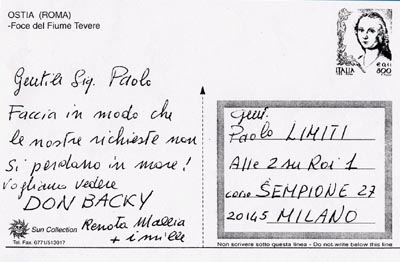 OSTIA (ROMA)
-Foce del Fiume Tevere
Gentile Sig. Paolo
Faccia in modo che
le nostre richieste non
si perdano in mare!
Vogliamo vedere
DON BACKY
Renata Mallia
+ i mille
Sun Collection
Tel. Fax. 677/512017
ITALIA 800
Gent.
Paolo LIMITI
Alle 2 su Rai 1
corso SEMPIONE 27
20145 MILANO
Non scrivere sotto questa linea - Do not write below this line